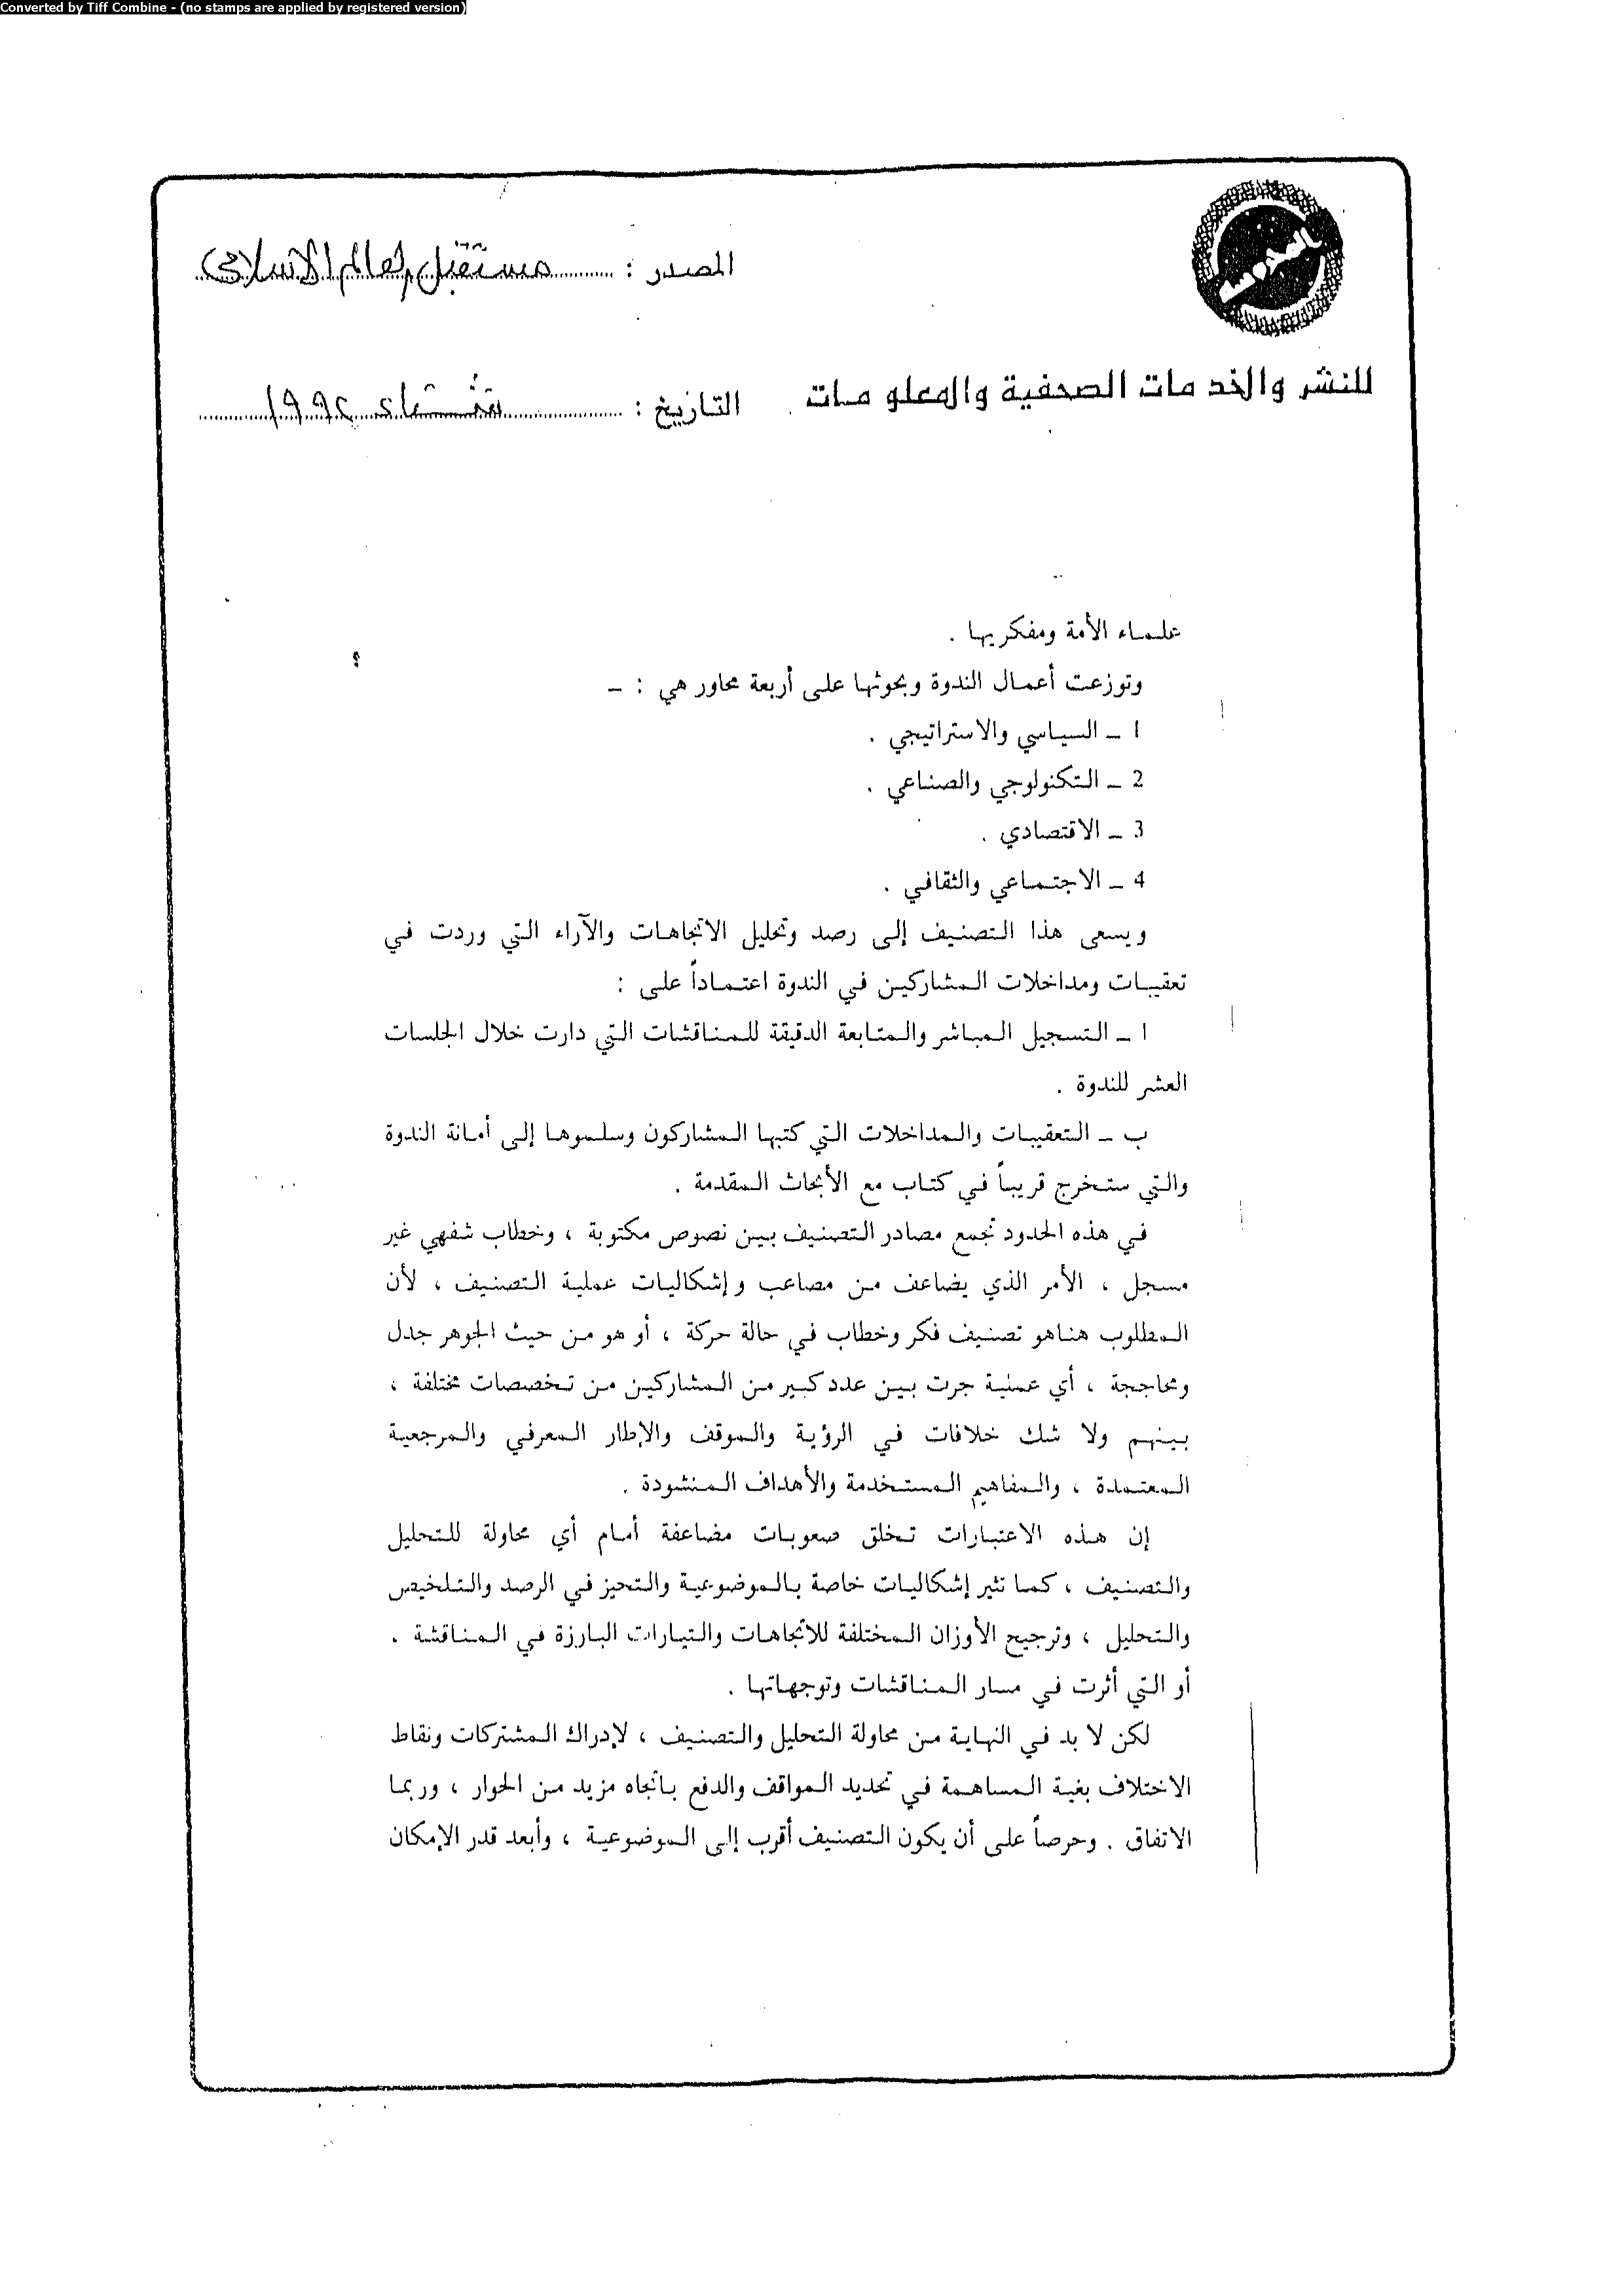 Converted by Tiff Combine - (no stamps are applied by registered version)
المصدر : مستقبل العالم الاسلامى
للنشر والخدمات الصحفية والمعلومات
التاريخ : شتاء ١٩٩٢
علماء الأمة ومفكريها .
وتوزعت أعمال الندوة وبحوثها على أربعة محاور هي : –
1 – السياسي والاستراتيجي .
2 – التكنولوجي والصناعي .
3 – الاقتصادي .
4 – الاجتماعي والثقافي .
ويسعى هذا التصنيف إلى رصد وتحليل الاتجاهات والآراء التي وردت في
تعقيبات ومداخلات المشاركين في الندوة اعتماداً على :
ا – التسجيل المباشر والمتابعة الدقيقة للمناقشات التي دارت خلال الجلسات
العشر للندوة .
ب – التعقيبات والمداخلات التي كتبها المشاركون وسلموها إلى أمانة الندوة
والتي ستخرج قريباً في كتاب مع الأبحاث المقدمة .
في هذه الحدود تجمع مصادر التصنيف بين نصوص مكتوبة ، وخطاب شفهي غير
مسجل ، الأمر الذي يضاعف من مصاعب وإشكاليات عملية التصنيف ، لأن
المطلوب هناهو تصنيف فكر وخطاب في حالة حركة ، أو هو من حيث الجوهر جدل
ومحاججة ، أي عملية جرت بين عدد كبير من المشاركين من تخصصات مختلفة ،
بينهم ولا شك خلافات في الرؤية والموقف والإطار المعرفي والمرجعية
المعتمدة ، والمفاهيم المستخدمة والأهداف المنشودة .
إن هذه الاعتبارات تخلق صعوبات مضاعفة أمام أي محاولة للتحليل
والتصنيف ، كما تثير إشكاليات خاصة بالموضوعية والتحيز في الرصد والتلخيص
والتحليل ، وترجيح الأوزان المختلفة للاتجاهات والتيارات البارزة في المناقشة .
أو التي أثرت في مسار المناقشات وتوجهاتها .
لكن لا بد في النهاية من محاولة التحليل والتصنيف ، لإدراك المشتركات ونقاط
الاختلاف بغية المساهمة في تحديد المواقف والدفع باتجاه مزيد من الحوار ، وربما
الاتفاق . وحرصاً على أن يكون التصنيف أقرب إلى الموضوعية ، وأبعد قدر الإمكان